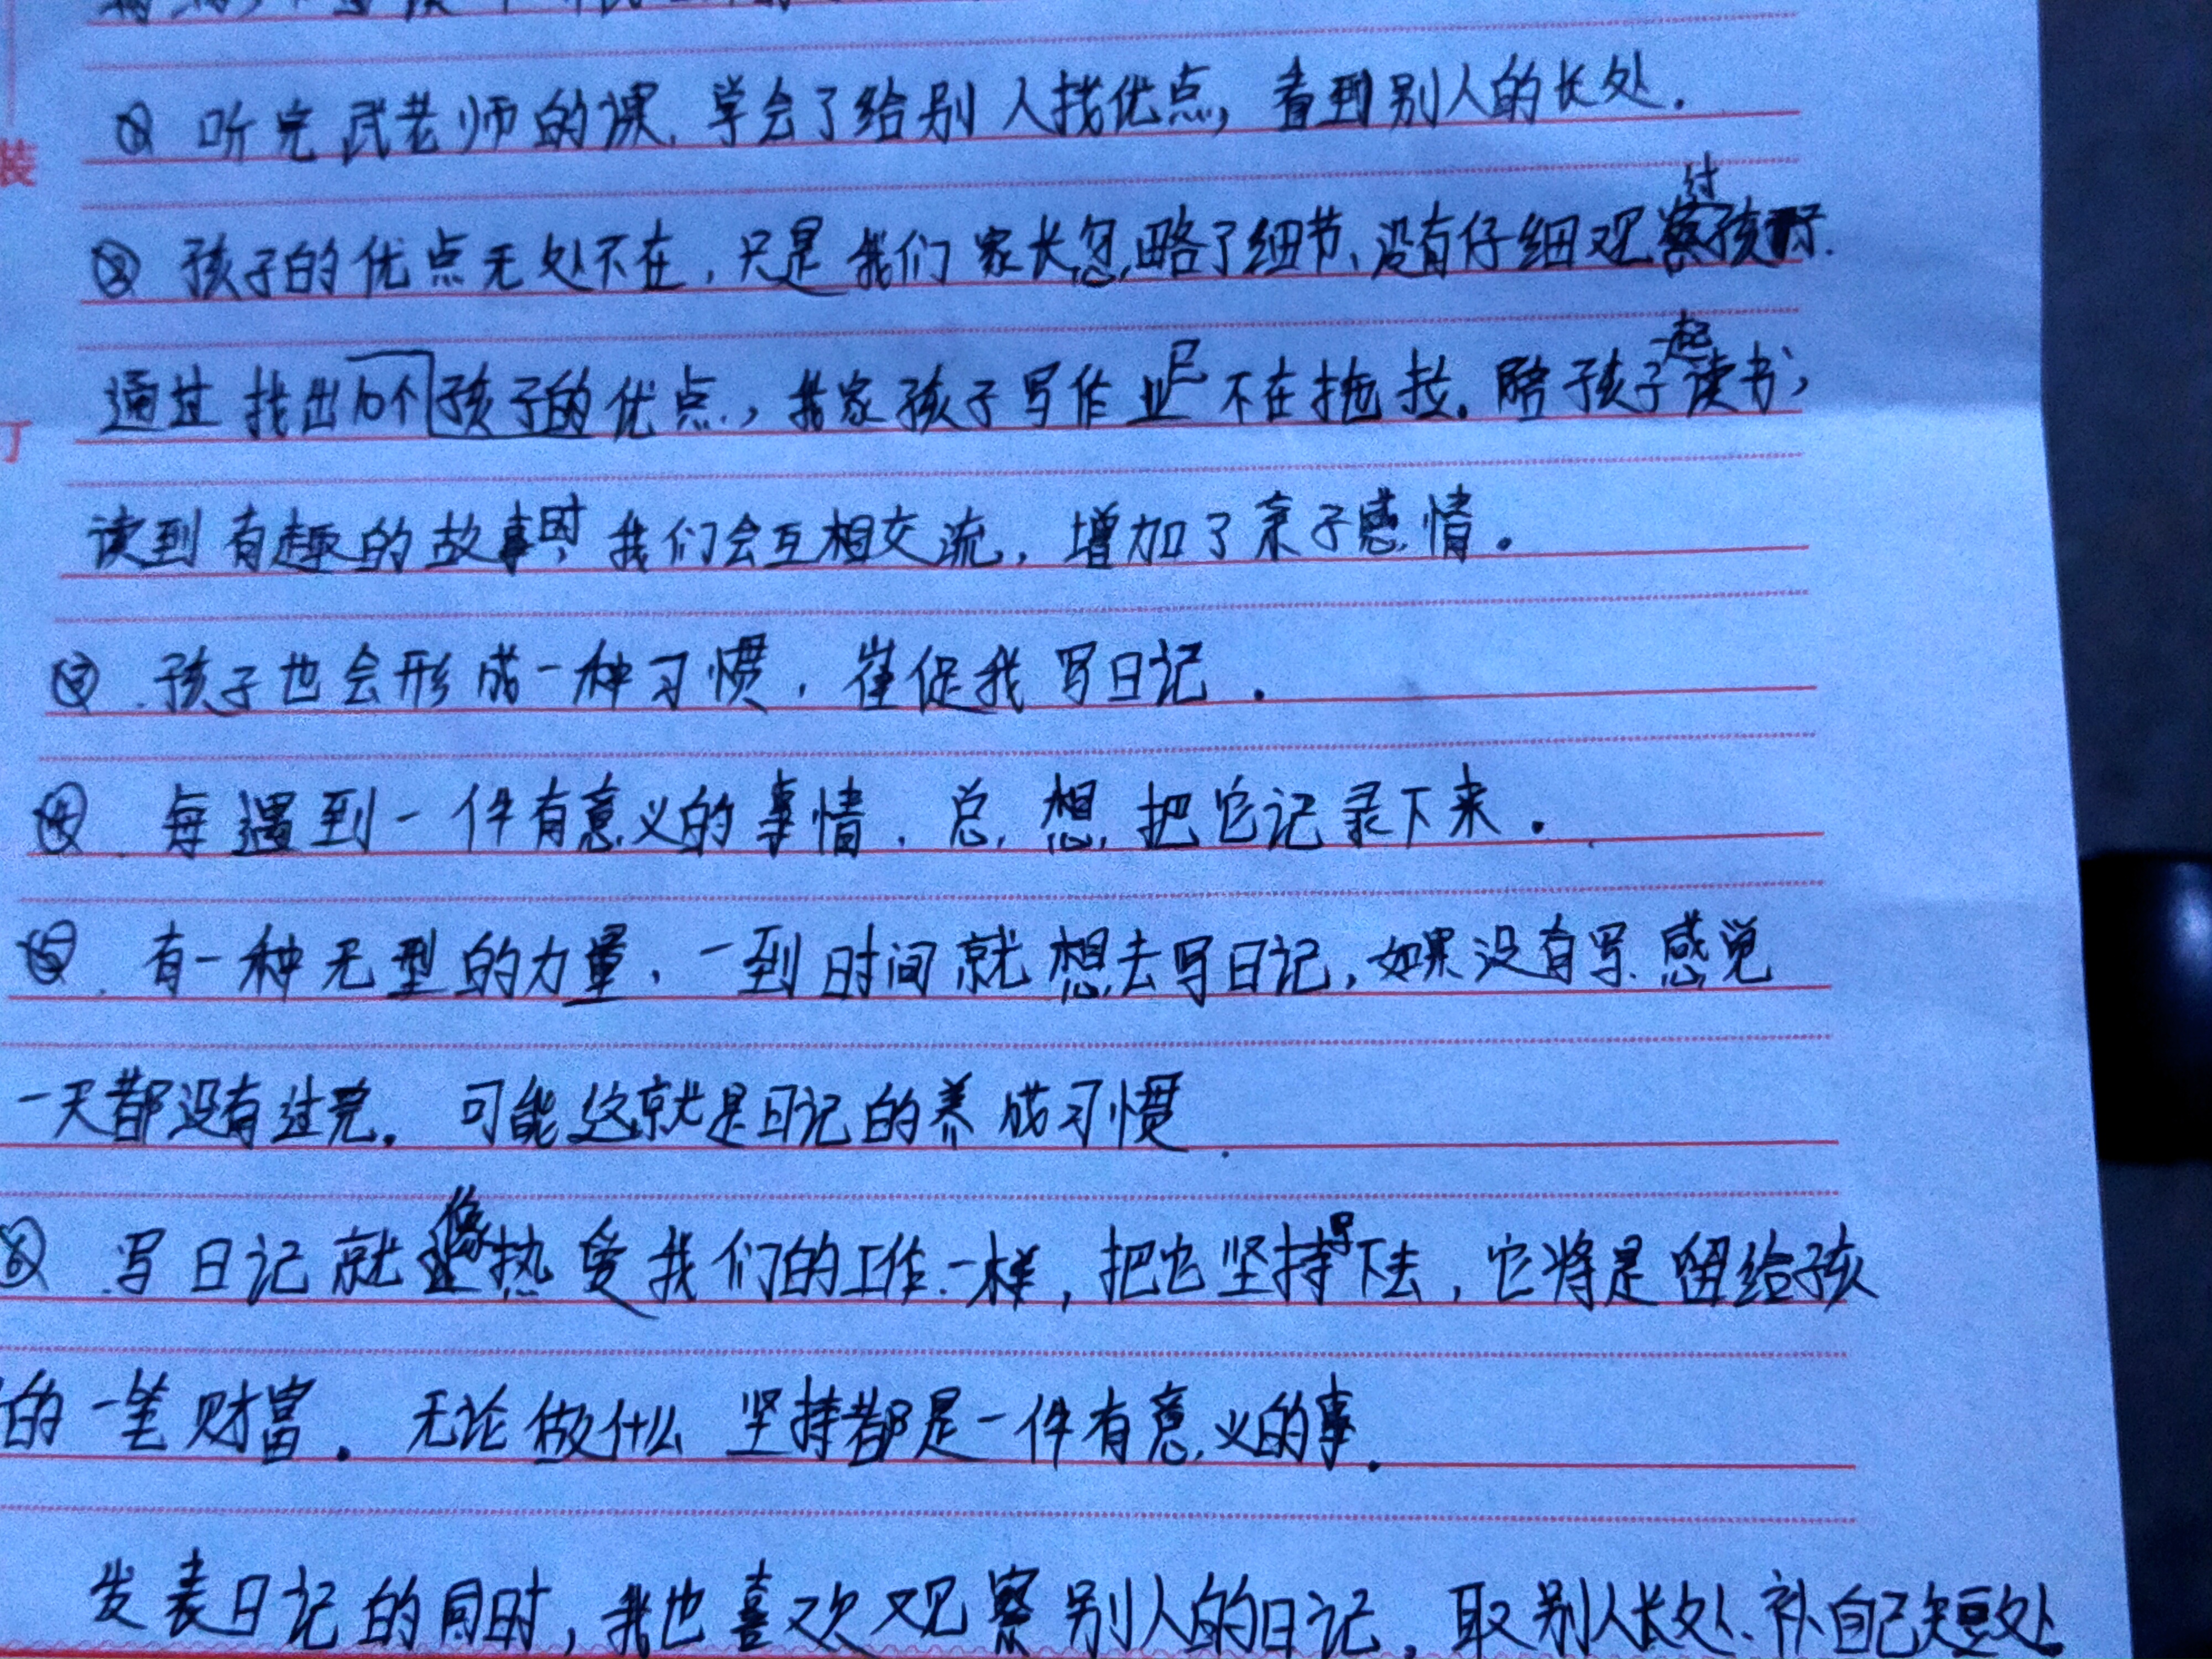 ① 听完武老师的课，学会了给别人找优点，看到别人的长处．
② 孩子的优点无处不在，只是我们家长忽略了细节、没有仔细观察过孩子．
装
通过找出10个孩子的优点，我家孩子写作业已不在拖拉。陪孩子一起读书，
丁
读到有趣的故事时 我们会互相交流，增加了亲子感情。
③．孩子也会形成一种习惯，崔促我写日记．
④．每遇到一件有意义的事情．总想把它记录下来．
⑤．有一种无型的力量、一到时间就想去写日记，如果没有写．感觉
一天都没有过完。可能这就是日记的养成习惯．
⑥．写日记就像热爱我们的工作一样，把它坚持写下去，它将是留给孩
的一笔财富。无论做什么 坚持都是一件有意义的事．
发表日记的同时，我也喜欢观察别人的日记．取别人长处．补自己短处